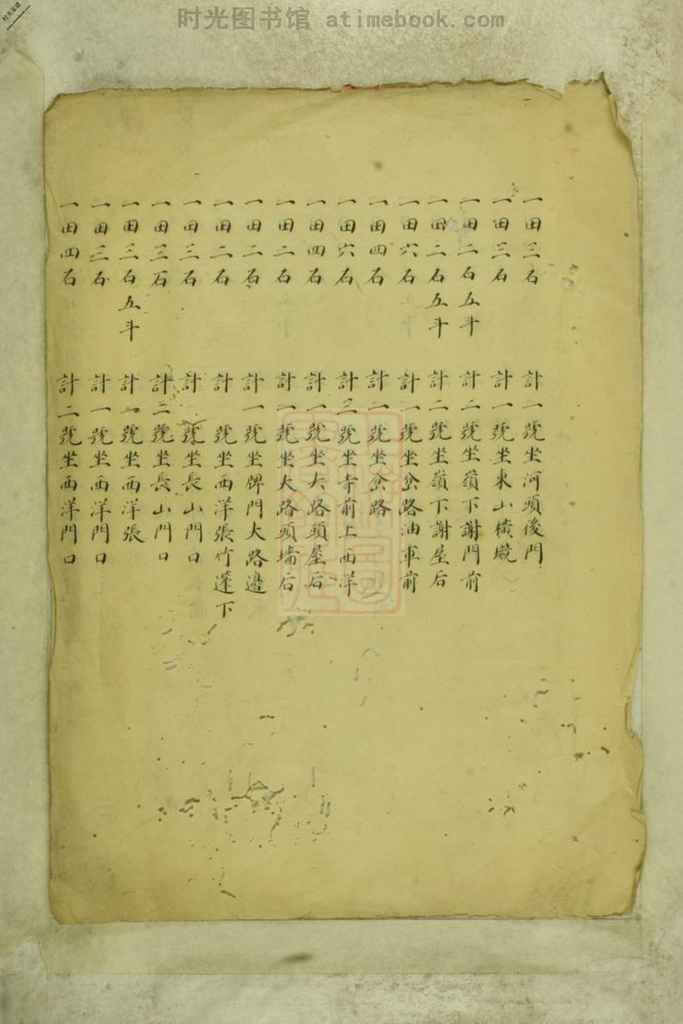 时光图书馆 atimebook.com
一田三石 計一號坐河頭後門
一田三石 計一號坐東山橫壠
一田二石五斗 計二號坐嶺下謝門前
一田二石五斗 計二號坐嶺下謝屋后
一田六石 計一號坐岔路油車前
一田四石 計一號坐岔路
一田六石 計三號坐寺前上西洋
一田四石 計一號坐大路頭屋后
一田二石 計一號坐大路頭墻后
一田二石 計一號坐牌門大路邊
一田二石 計 號坐西洋張竹蓬下
一田三石 計 號坐長山門口
一田三石 計二號坐長山門口
一田三石五斗 計一號坐西洋張
一田三石 計一號坐西洋門口
一田四石 計二號坐西洋門口